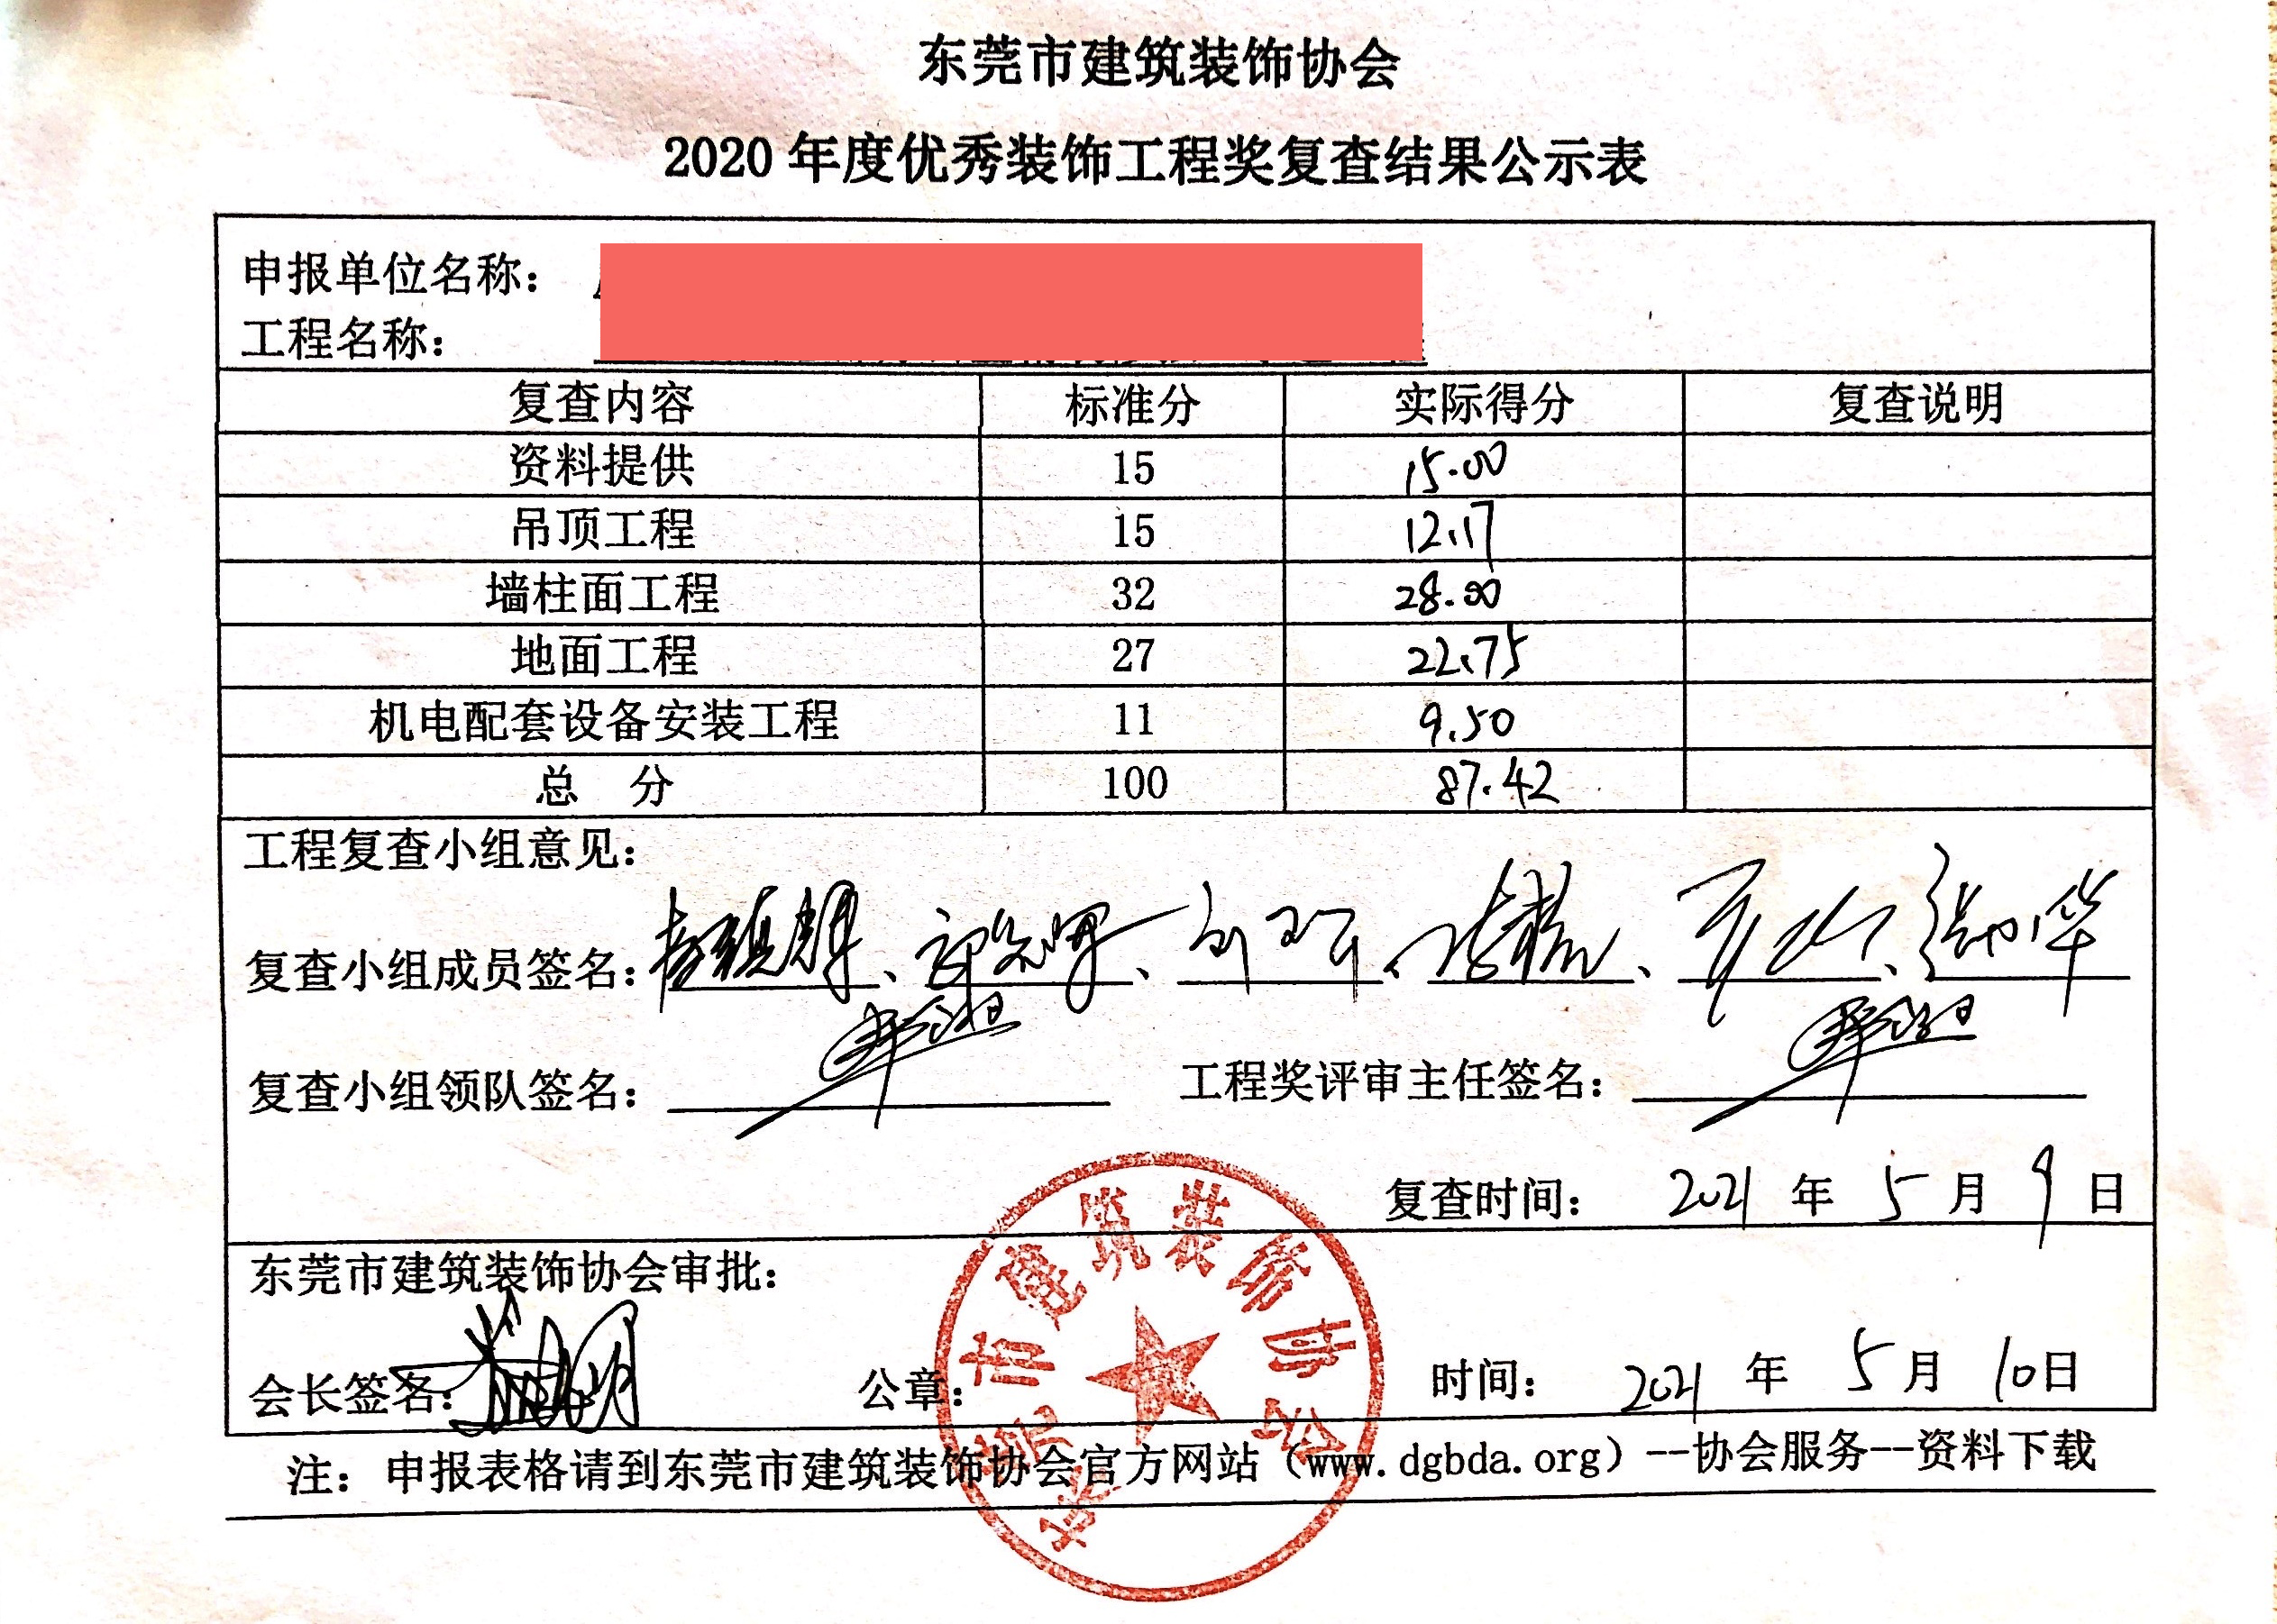 东莞市建筑装饰协会
2020 年度优秀装饰工程奖复查结果公示表
申报单位名称：
工程名称：
复查内容 标准分 实际得分 复查说明
资料提供 15 15.00
吊顶工程 15 12.17
墙柱面工程 32 28.00
地面工程 27 22.75
机电配套设备安装工程 11 9.50
总 分 100 87.42
工程复查小组意见：
复查小组成员签名：
复查小组领队签名： 工程奖评审主任签名：
复查时间： 2021 年 5 月 9 日
东莞市建筑装饰协会审批：
会长签名： 公章： 时间： 2021 年 5 月 10 日
东莞市建筑装饰协会
注：申报表格请到东莞市建筑装饰协会官方网站（www.dgbda.org）--协会服务--资料下载